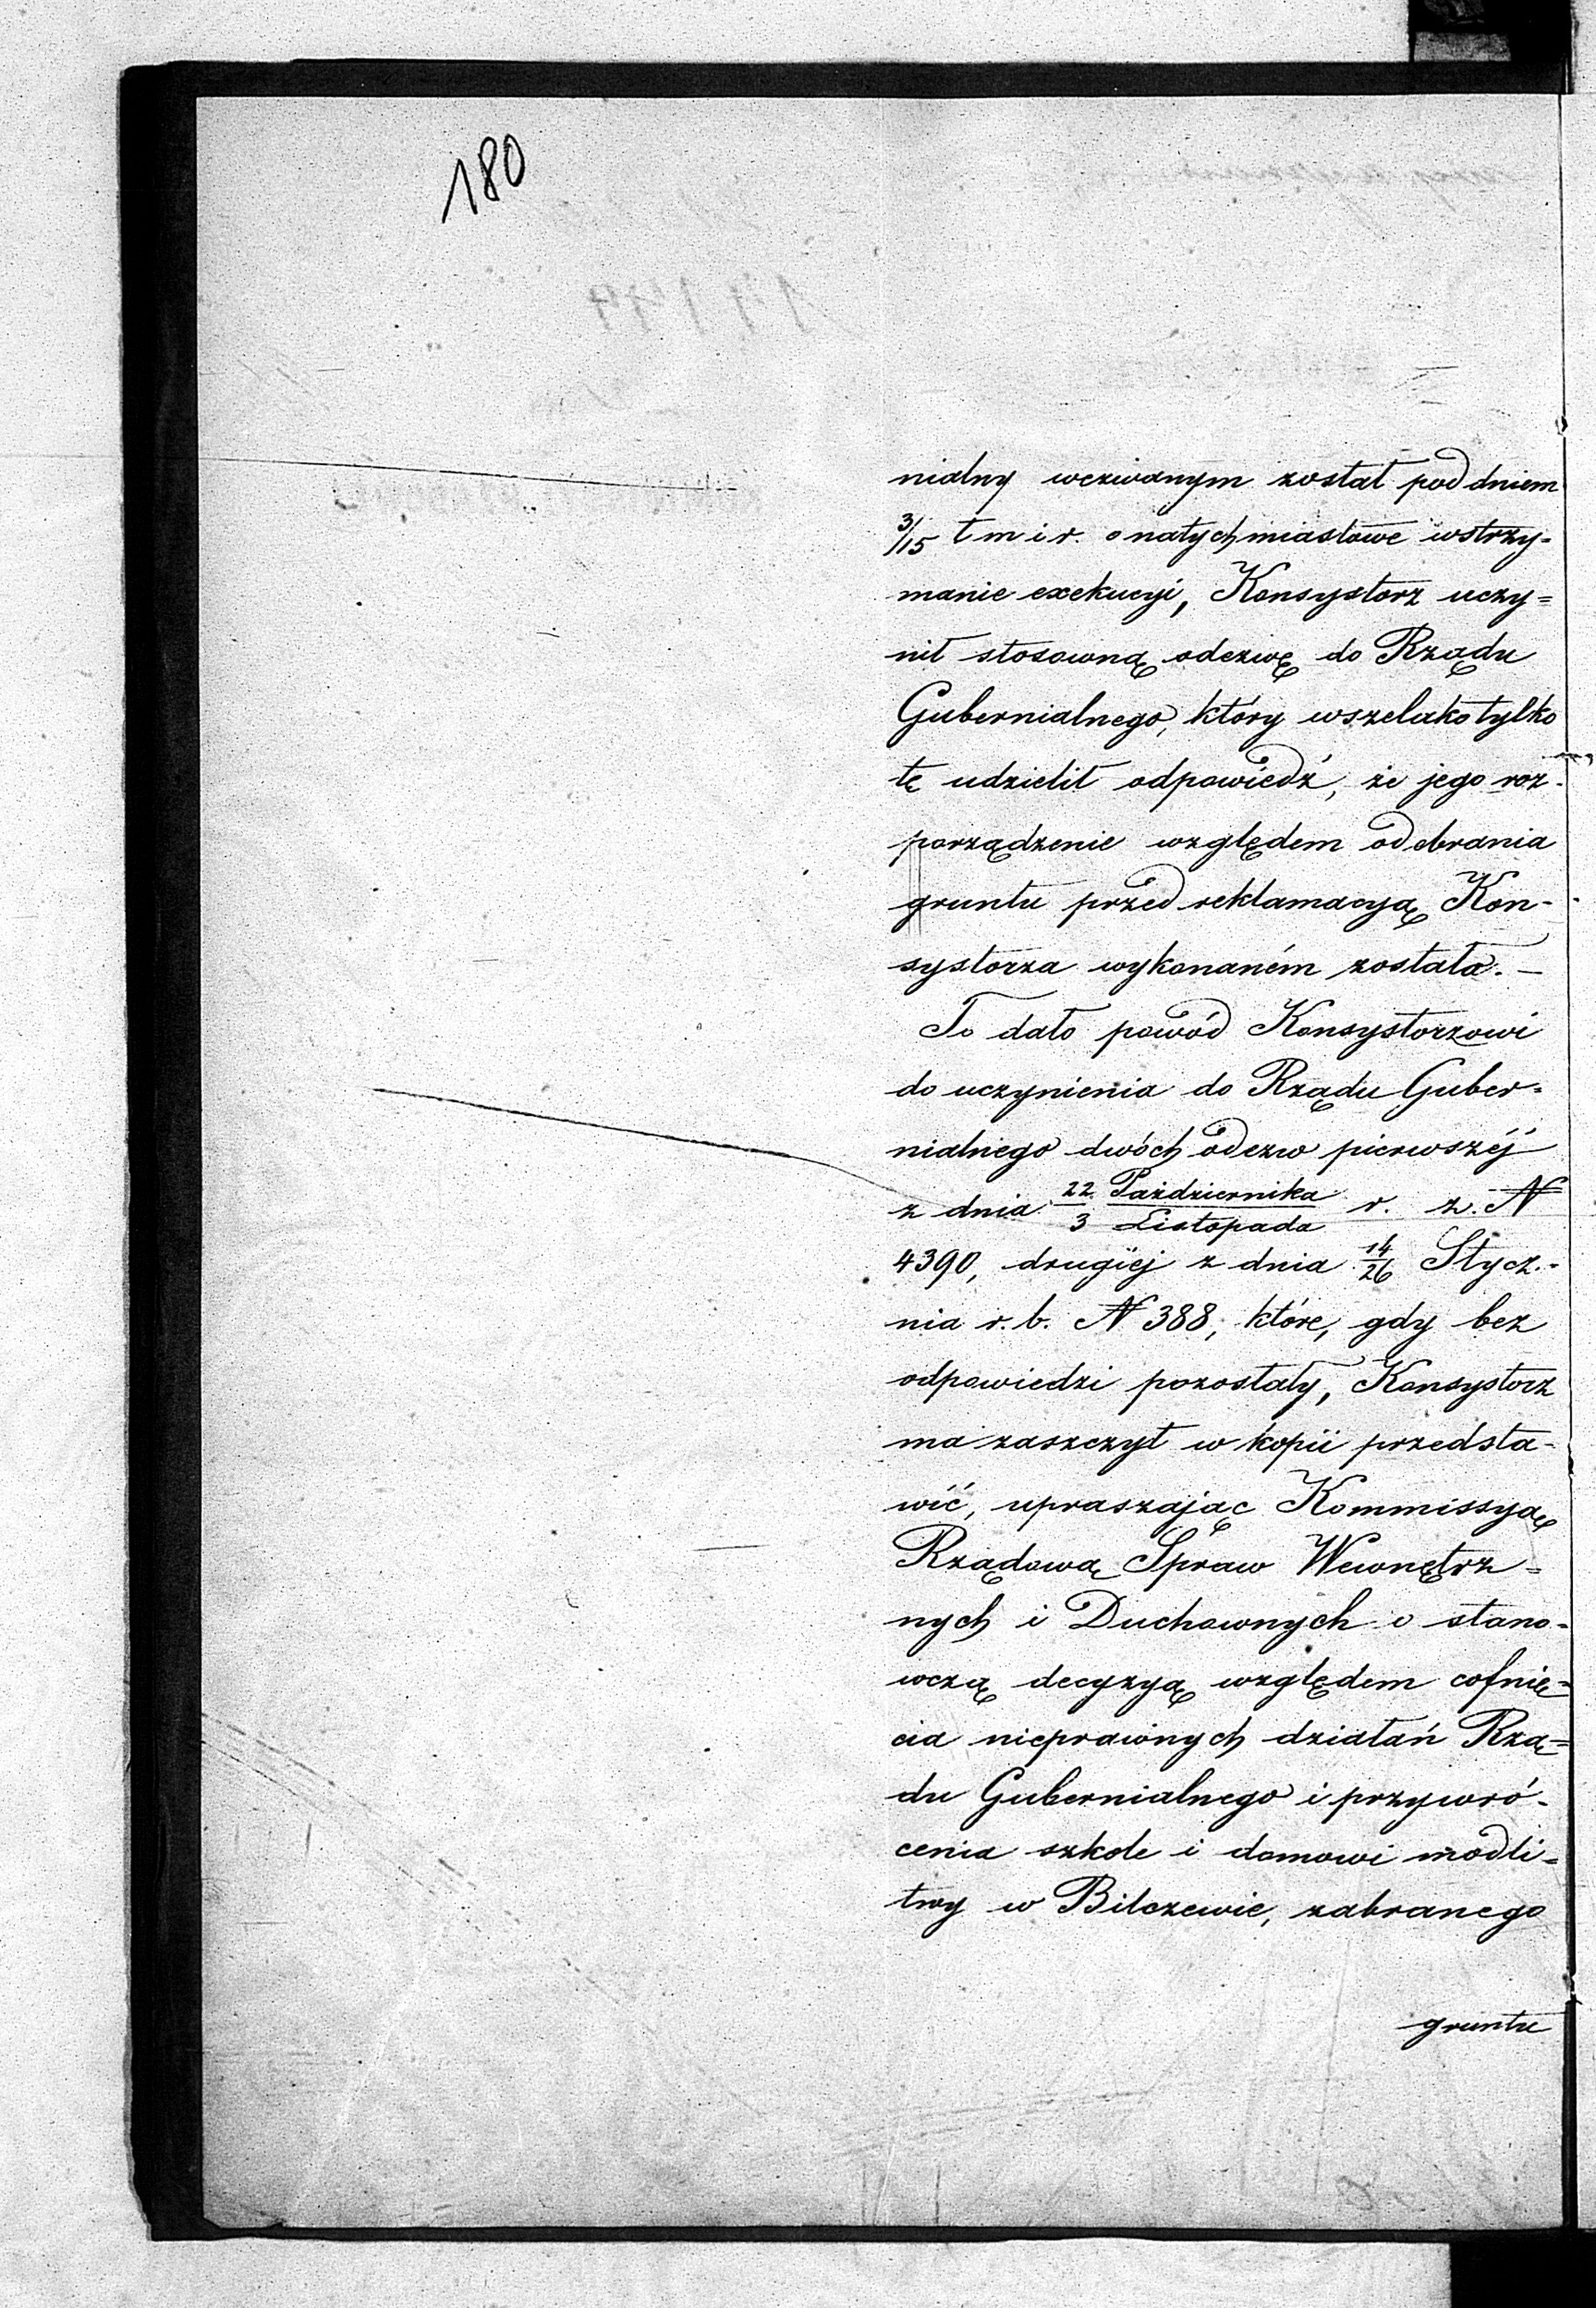 180
nialny wezwanym został pod dniem
3/15 t m i r. o natychmiastowe wstrzy-
manie exekucyi, Konsystorz uczy=
nił stosowną odezwę do Rządu
Gubernialnego, który wszelako tylko
tę udzielił odpowiedź, że jego roz-
porządzenie względem odebrania
gruntu przed reklamacyą Kon-
systorza wykonaném została. —
To dało powód Konsystorzowi
do uczynienia do Rządu Guber-
nialnego dwóch odezw pierwszéj
z dnia 22 Października / 3 Listopada r. z. N
4390, drugiéj z dnia 14/26 Stycz-
nia r. b. N 388, które, gdy bez
odpowiedzi pozostały, Konsystorz
ma zaszczyt w kopii przedsta-
wić, upraszając Kommissyą
Rządową Spraw Wewnętrz=
nych i Duchownych o stano-
wczą decyzyą względem cofnię=
cia nieprawnych działań Rzą=
du Gubernialnego i przywró-
cenia szkole i domowi modli=
twy w Bilczewie, zabranego
gruntu